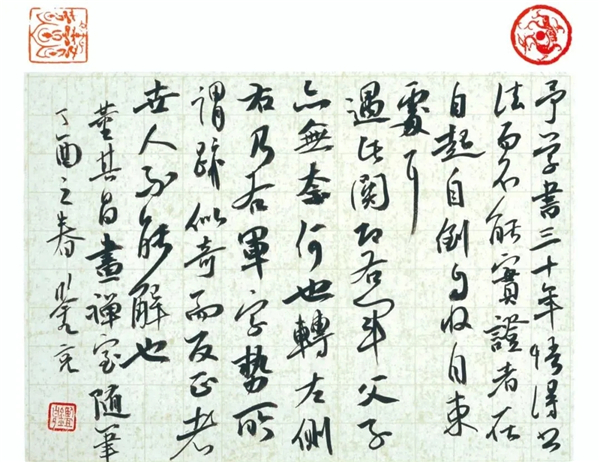 予学書三十年悟得书
法而不能實證者在
自起自倒自收自束
處耳
過此関即右軍父子
亦無奈何也轉左側
右乃右軍字勢所
謂跡似奇而反正者
世人不能解也
董其昌畫禪室隨筆
丁酉之春